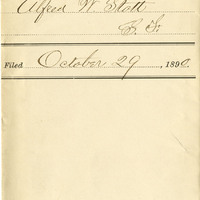 Alfred W. Stott
Filed October 29, 1890.